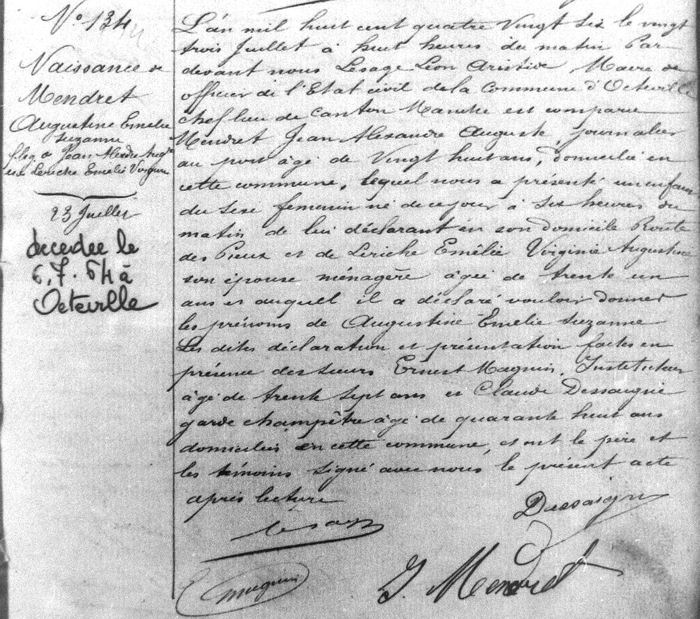 N° 134
Naissance de
Mendret
Augustine Emélie
Suzanne
fille de Jean Alexdre Augte
et de Leriche Emélie Virginie
23 Juillet
decedee le
6.7.54 à
Octeville
L'an mil huit cent quatre vingt six le vingt
trois Juillet à huit heures du matin Par
devant nous Lesage Léon Aristide Maire de
officier de l'Etat civil de la Commune d'Octeville
chef lieu de Canton Manche est comparu
Mendret Jean Alexandre Auguste, journalier
au port âgé de Vingt huit ans, domicilié en
cette commune, lequel nous a présenté un enfant
du sexe féminin né de ce jour à six heures du
matin de lui déclarant en son domicile Route
des Pieux et de Leriche Emélie Virginie Augustine
son épouse ménagère âgée de trente un
ans et auquel il a déclaré vouloir donner
les prénoms de Augustine Emélie Suzanne
Les dites déclaration et présentation faites en
présence des sieurs Ernest Magnin, Instituteur
âgé de trente sept ans et Claude Dessaigne
garde champêtre âgé de quarante huit ans
domiciliés en cette commune, et ont le père et
les témoins signé avec nous le présent acte
après lecture
Dessaigne
Lesage
Magnin
J. Mendret